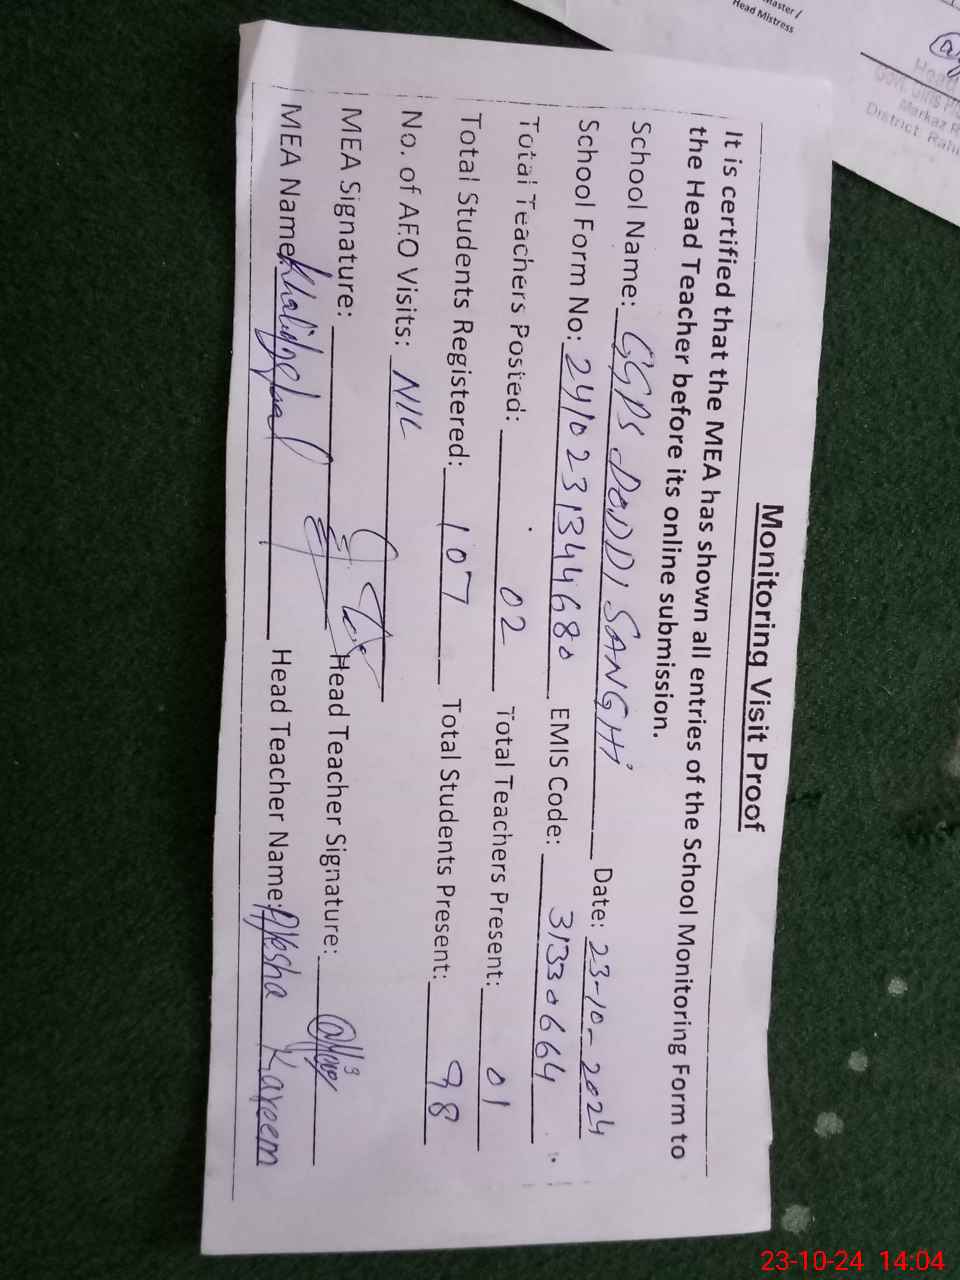 Monitoring Visit Proof
It is certified that the MEA has shown all entries of the School Monitoring Form to
the Head Teacher before its online submission.
School Name: GGPS DODDI SANGHI Date: 23-10-2024
School Form No: 241023134468 0 EMIS Code: 31330664
Total Teachers Posted: 02 Total Teachers Present: 01
Total Students Registered: 107 Total Students Present: 98
No. of AEO Visits: NIL
MEA Signature: Head Teacher Signature:
MEA Name: Head Teacher Name: Ayesha Kareem
Master /
Head Mistress
Head
Govt. Girls
Markaz R
District Rahi
23-10-24 14:04